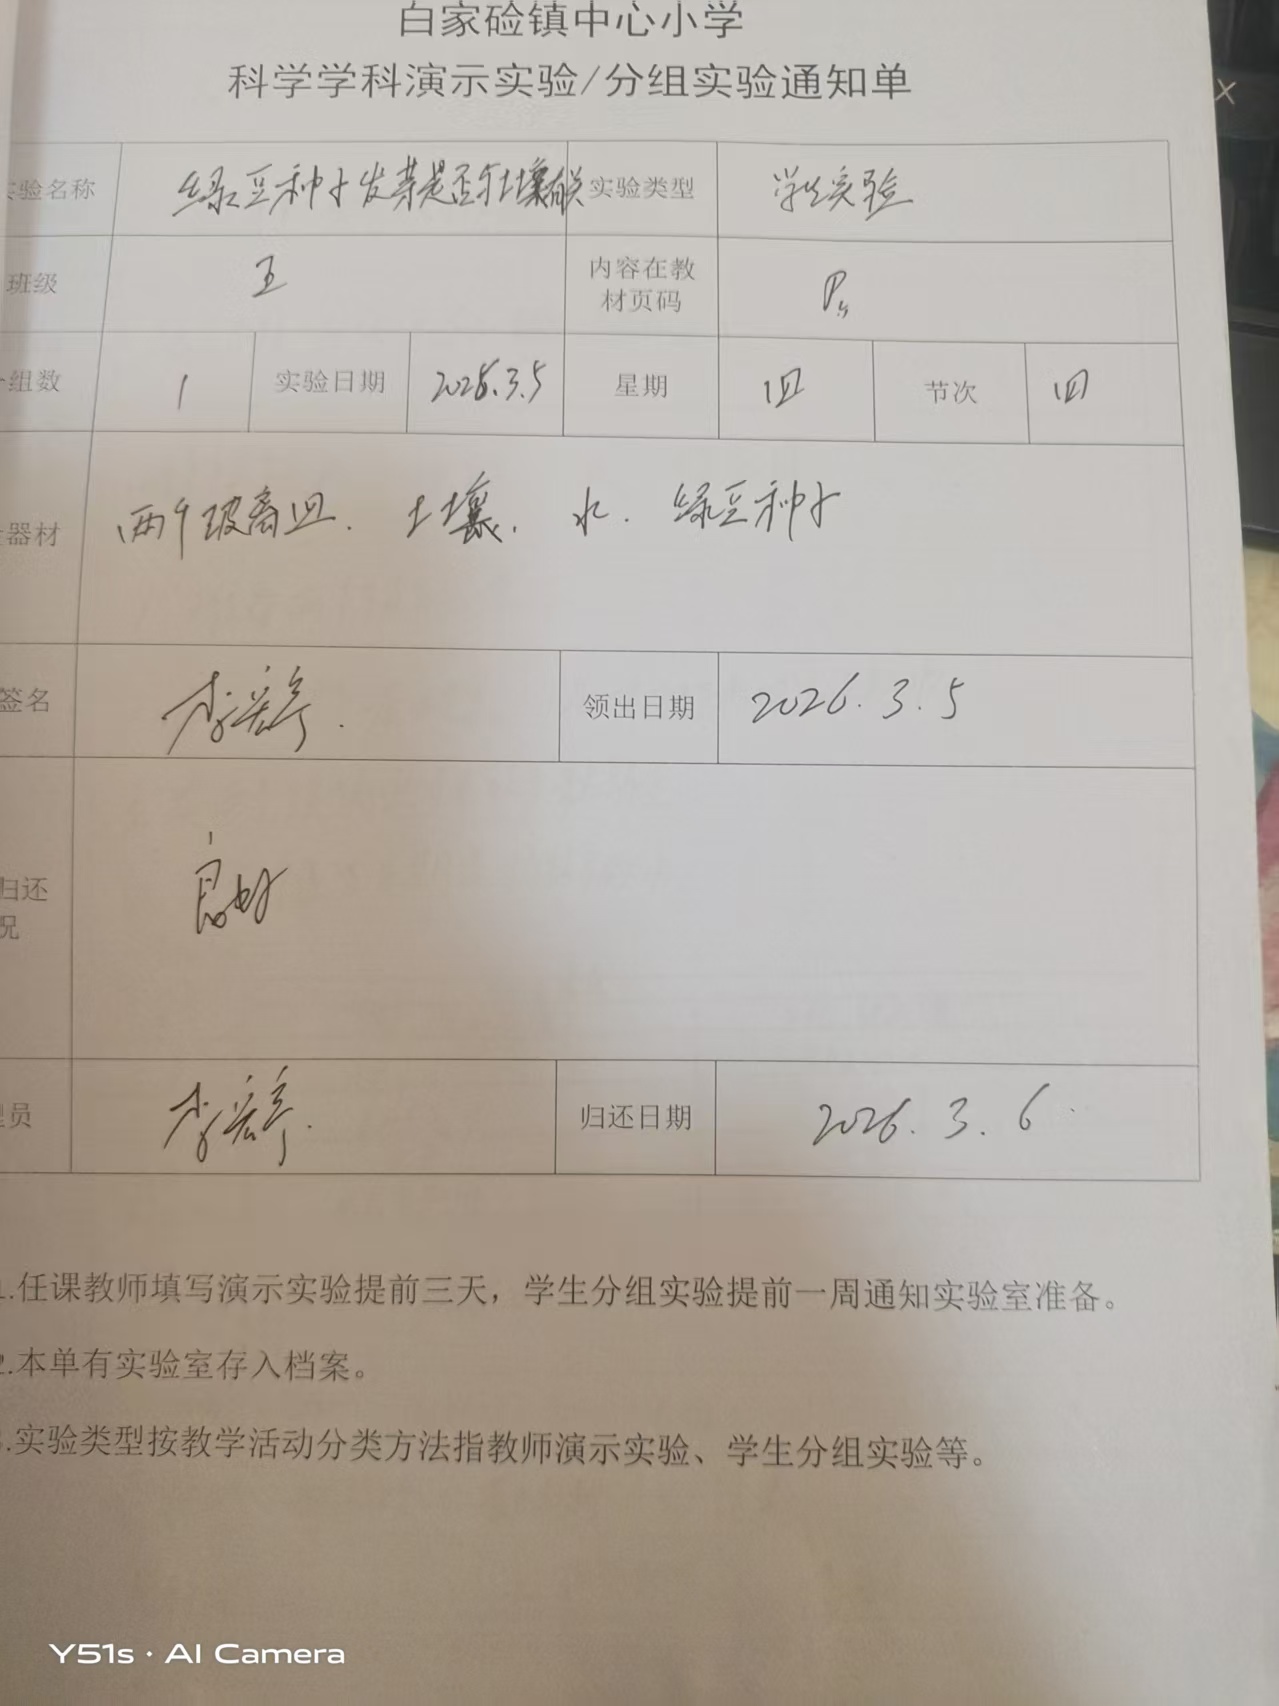 白家硷镇中心小学
科学学科演示实验/分组实验通知单
实验名称 绿豆种子发芽是否与土壤有关 实验类型 学生实验
班级 五 内容在教材页码 P
组数 1 实验日期 2026.3.5 星期 四 节次 四
器材 两个玻离皿. 土壤. 水. 绿豆种子
签名 李 领出日期 2026.3.5
归还 况 良好
员 李 归还日期 2026.3.6
1.任课教师填写演示实验提前三天，学生分组实验提前一周通知实验室准备。
2.本单有实验室存入档案。
3.实验类型按教学活动分类方法指教师演示实验、学生分组实验等。
Y51s · AI Camera